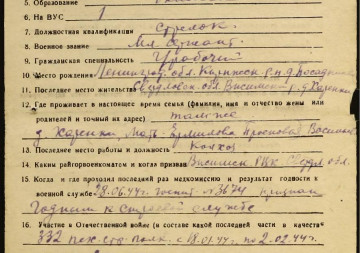 5. Образование
6. № ВУС 1
7. Должностная квалификация Стрелок.
8. Военное звание Мл. сержант.
9. Гражданская специальность Угробочий
10. Место рождения Ленинград. обл. Киришск. р-н д. Посадник
11. Последнее место жительства Свердлов. обл. Висимский р. д. Харенки
12. Где проживает в настоящее время семья (фамилия, имя и отчество жены или
родителей и точный на адрес) там же
д. Харенка Мать-Ермилова Просковья
13. Последнее место работы и должность Колхоз
14. Каким райгорвоенкоматом и когда призван Висимск РВК Свердл. обл.
15. Когда и где проходил последний раз медкомиссию и результат годности к
военной службе 28.06.44г. госпит. №3674 признан
Годным к строевой службе
16. Участие в Отечественной войне (в составе какой последней части в качеств
332 пех. стр. полк. с 18.01.44г. по 2.02.44г.